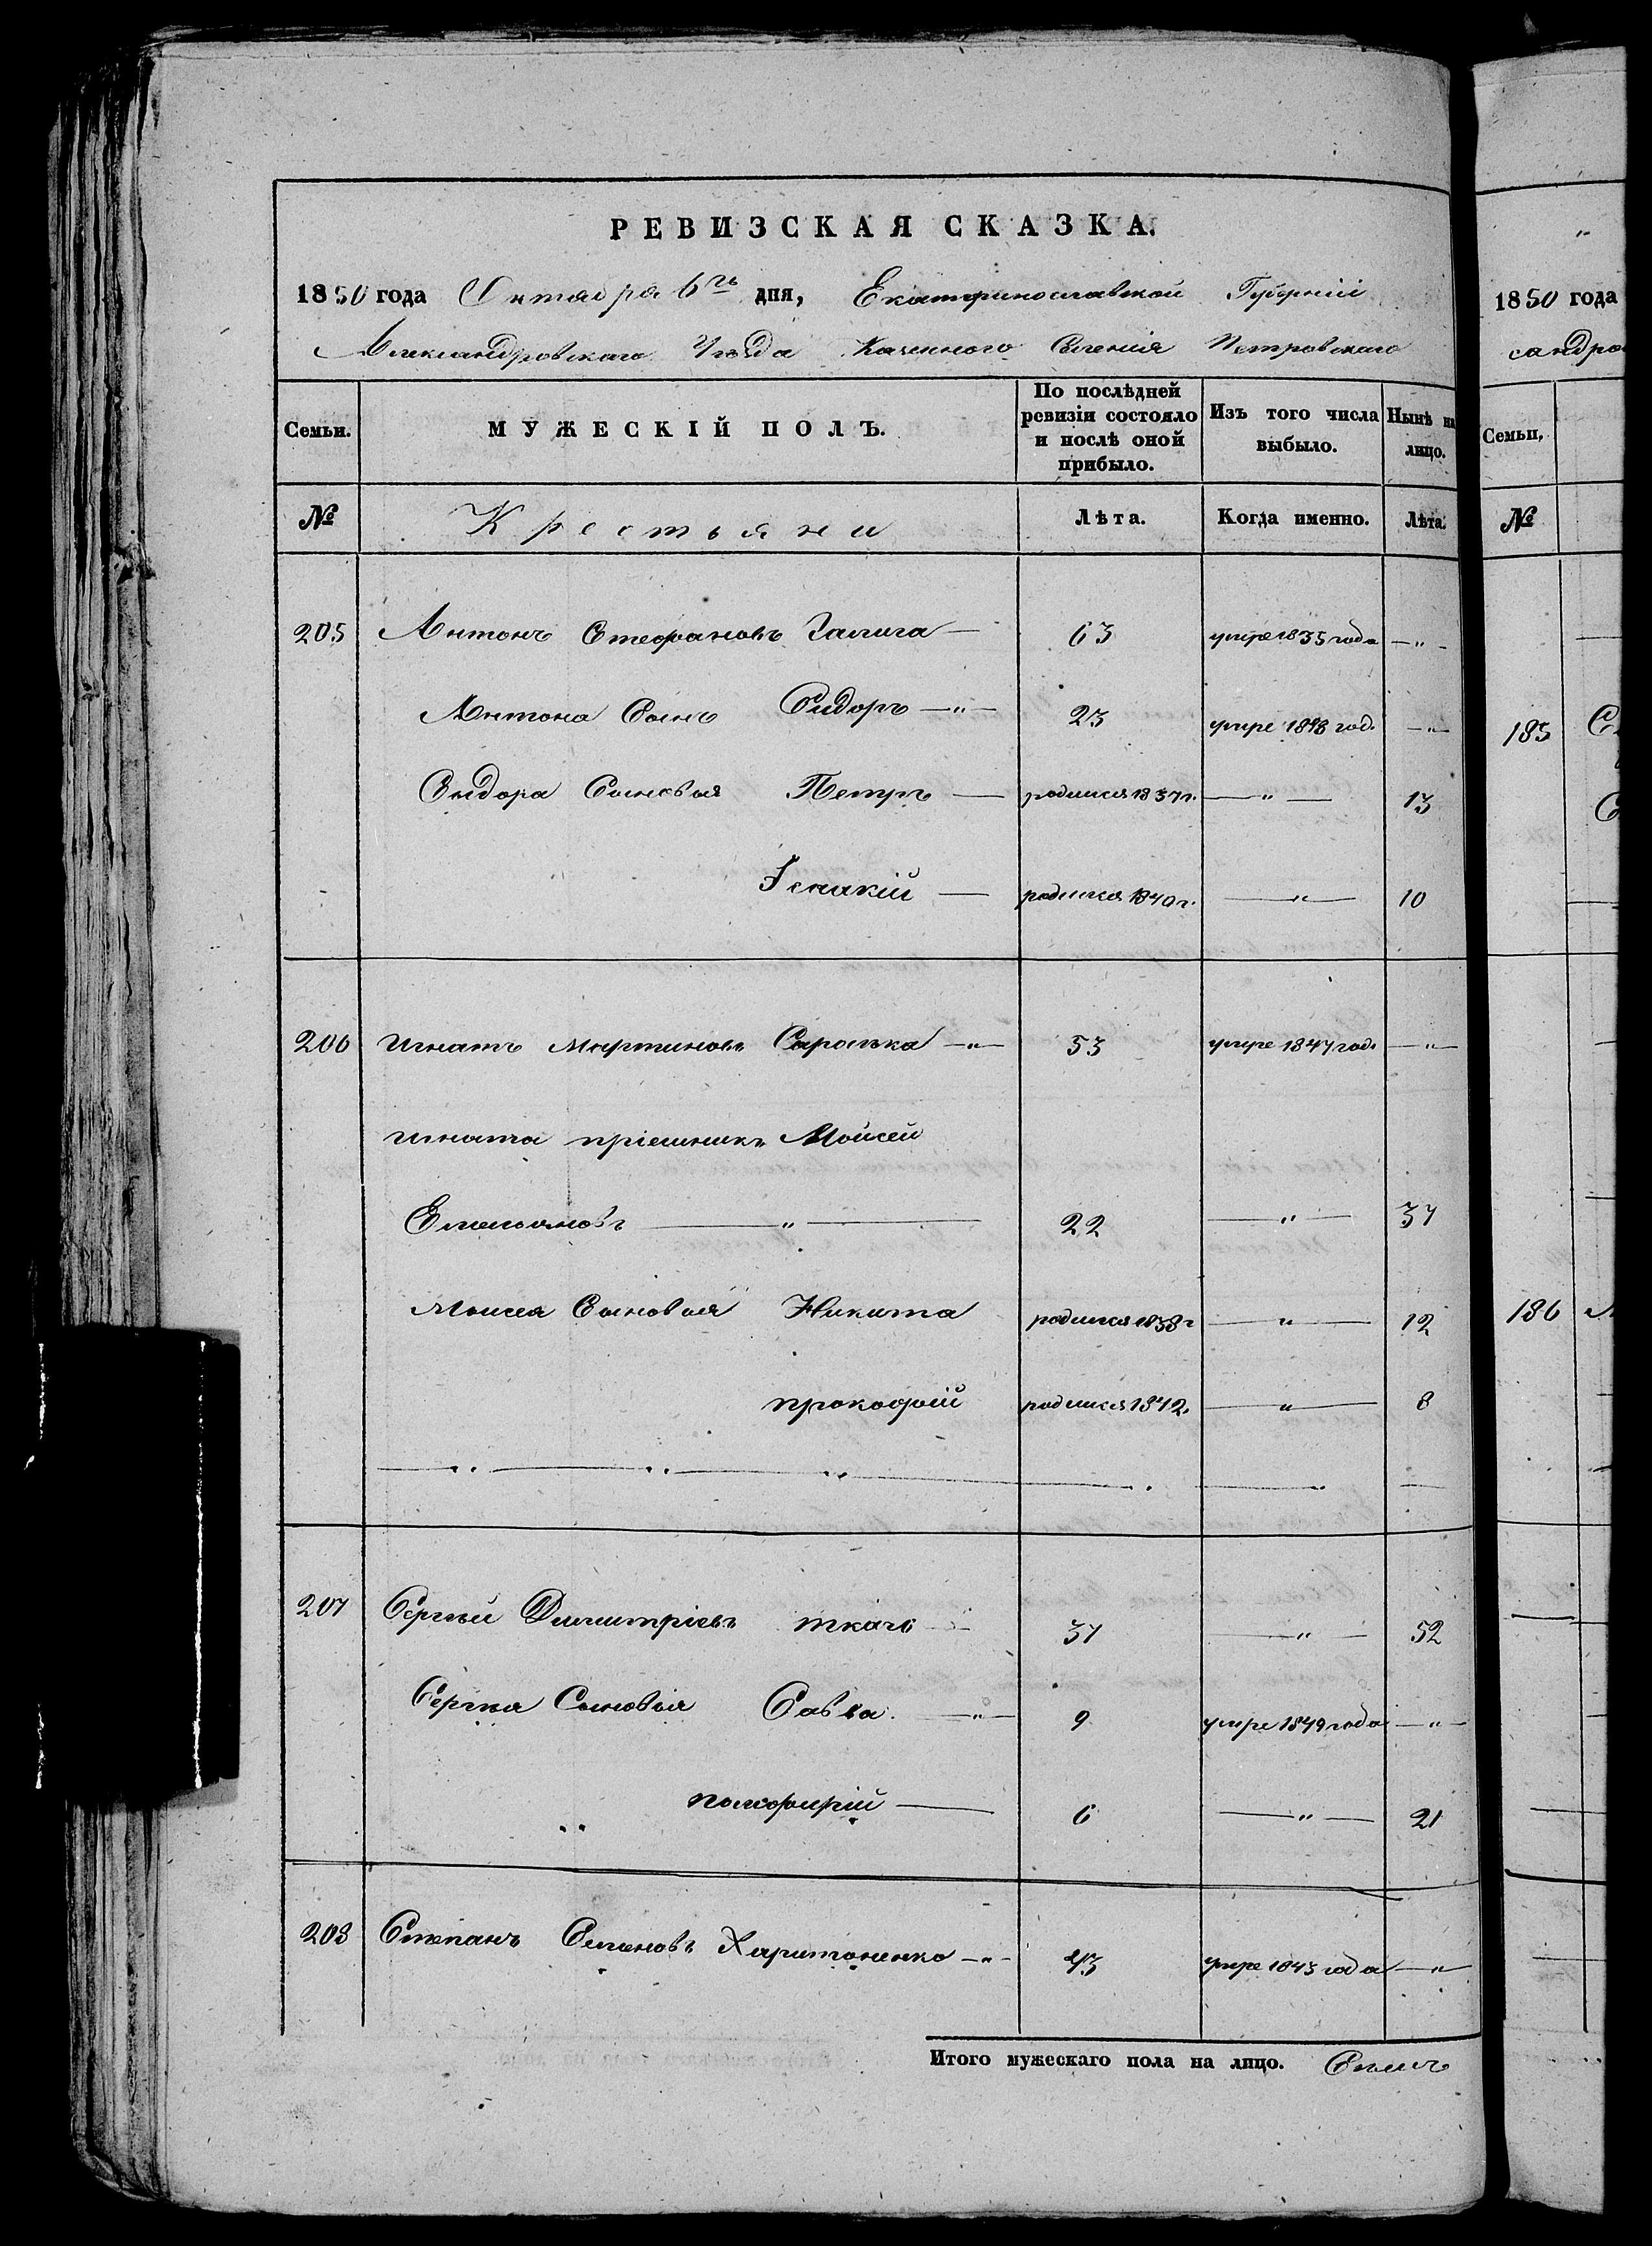 РЕВИЗСКАЯ СКАЗКА.
1850 года Октября 6го дня, Екатеринославской Губерніи
Александровскаго Уезда Казенного Селенія Петровскаго
Семьи. МУЖЕСКІЙ ПОЛЪ. По послѣдней ревизіи состояло и послѣ оной прибыло. Изъ того числа выбыло. Нынѣ на лицо.
№ Крестьяни Лѣта. Когда именно. Лѣта.
205 Антонъ Стефановъ 63 умре 1835 года — " —
Антона Сынъ Сидоръ — " — 23 умре 1848 год. — " —
Сидора Сыновья Петръ — родился 1837 г. — " — 13
Ісаакій — родился 1840 г. — " — 10
206 Игнатъ Мартиновъ — " — 53 умре 1847 год. — " —
Игната пріемникъ Мойсей
Емельяновъ — " — 22 — " — 37
Моисея Сыновья Никита родился 1838 г — " — 12
Прокофій родился 1842. — " — 8
207 Сергѣй Димитріевъ ткачь 37 — " — 52
Сергея Сыновья Савва. — " — 9 умре 1849 года — " —
" Полфирій — 6 — " — 21
208 Степанъ Семеновъ Харитоненко — " — 43 умре 1843 года — " —
Итого мужескаго пола на лицо. Семь
1850 года
сандро
Семьи,
№
185
186